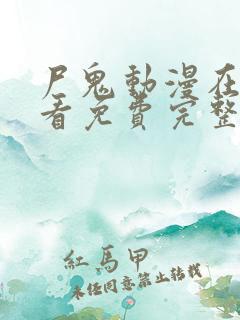 尸鬼動漫在
看免費完整
紅馬甲
未經同意禁止轉載